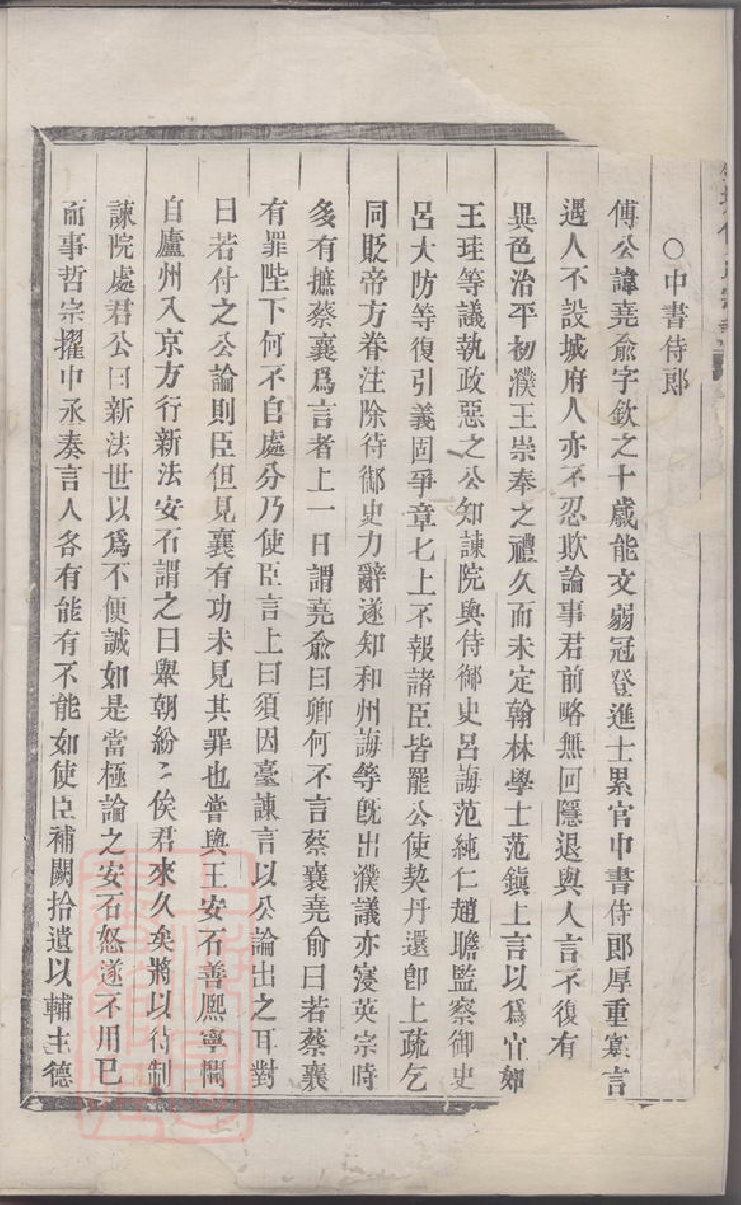 ○中書侍郎
傅公諱堯俞字欽之十歲能文弱冠登進士累官中書侍郎厚重寡言
遇人不設城府人亦不忍欺論事君前略無回隱退與人言不復有
異色治平初濮王崇奉之禮久而未定翰林學士范鎮上言以爲宜如
王珪等議執政惡之公知諫院與侍御史呂誨范純仁趙瞻監察御史
呂大防等復引義固爭章七上不報諸臣皆罷公使契丹還卽上疏乞
同貶帝方眷注除待御史力辭遂知和州誨等旣出濮議亦寑英宗時
多有摭蔡襄爲言者上一日謂堯俞曰卿何不言蔡襄堯俞曰若蔡襄
有罪陛下何不自處分乃使臣言上曰須因臺諫言以公論出之耳對
曰若付之公論則臣但見襄有功未見其罪也嘗與王安石善熙寧間
自廬州入京方行新法安石謂之曰舉朝紛〻俟君來久矣將以待制
諫院處君公曰新法世以爲不便誠如是當極論之安石怒遂不用已
而事哲宗擢中丞奏言人各有能有不能如使臣補闕拾遺以輔主德